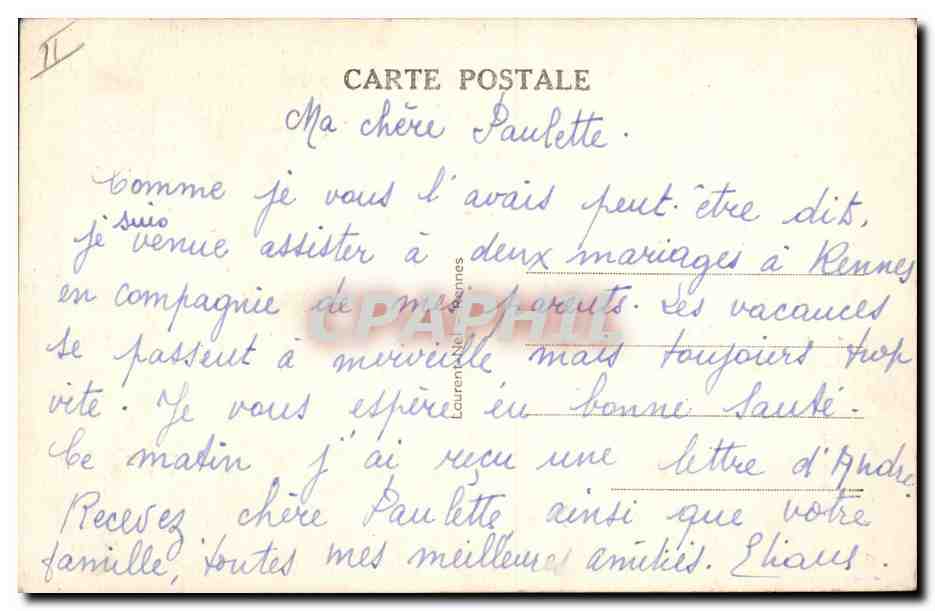 II
CARTE POSTALE
Ma chère Paulette.
Comme je vous l'avais peut-être dit,
je suis venue assister à deux mariages à Rennes
en compagnie de mes parents. Les vacances
se passent à merveille mais toujours trop
vite. Je vous espère en bonne santé.
Ce matin j'ai reçu une lettre d'André
Recevez chère Paulette ainsi que votre
famille, toutes mes meilleures amitiés. Eliane.
Laurent-Nel - Rennes
CPAPHIL